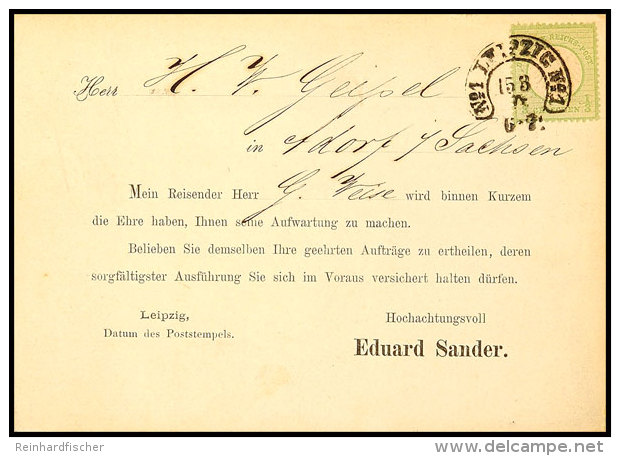 REICHS-POST
Nº1 LEIPZIG Nº1
15 8
6-7.
Herr H. W. Geipel
in Adorf i/ Sachsen
Mein Reisender Herr G. Weise wird binnen Kurzem
die Ehre haben, Ihnen seine Aufwartung zu machen.
Belieben Sie demselben Ihre geehrten Aufträge zu ertheilen, deren
sorgfältigster Ausführung Sie sich im Voraus versichert halten dürfen.
Leipzig,
Datum des Poststempels.
Hochachtungsvoll
Eduard Sander.
Reinhardfischer
delcampe.net